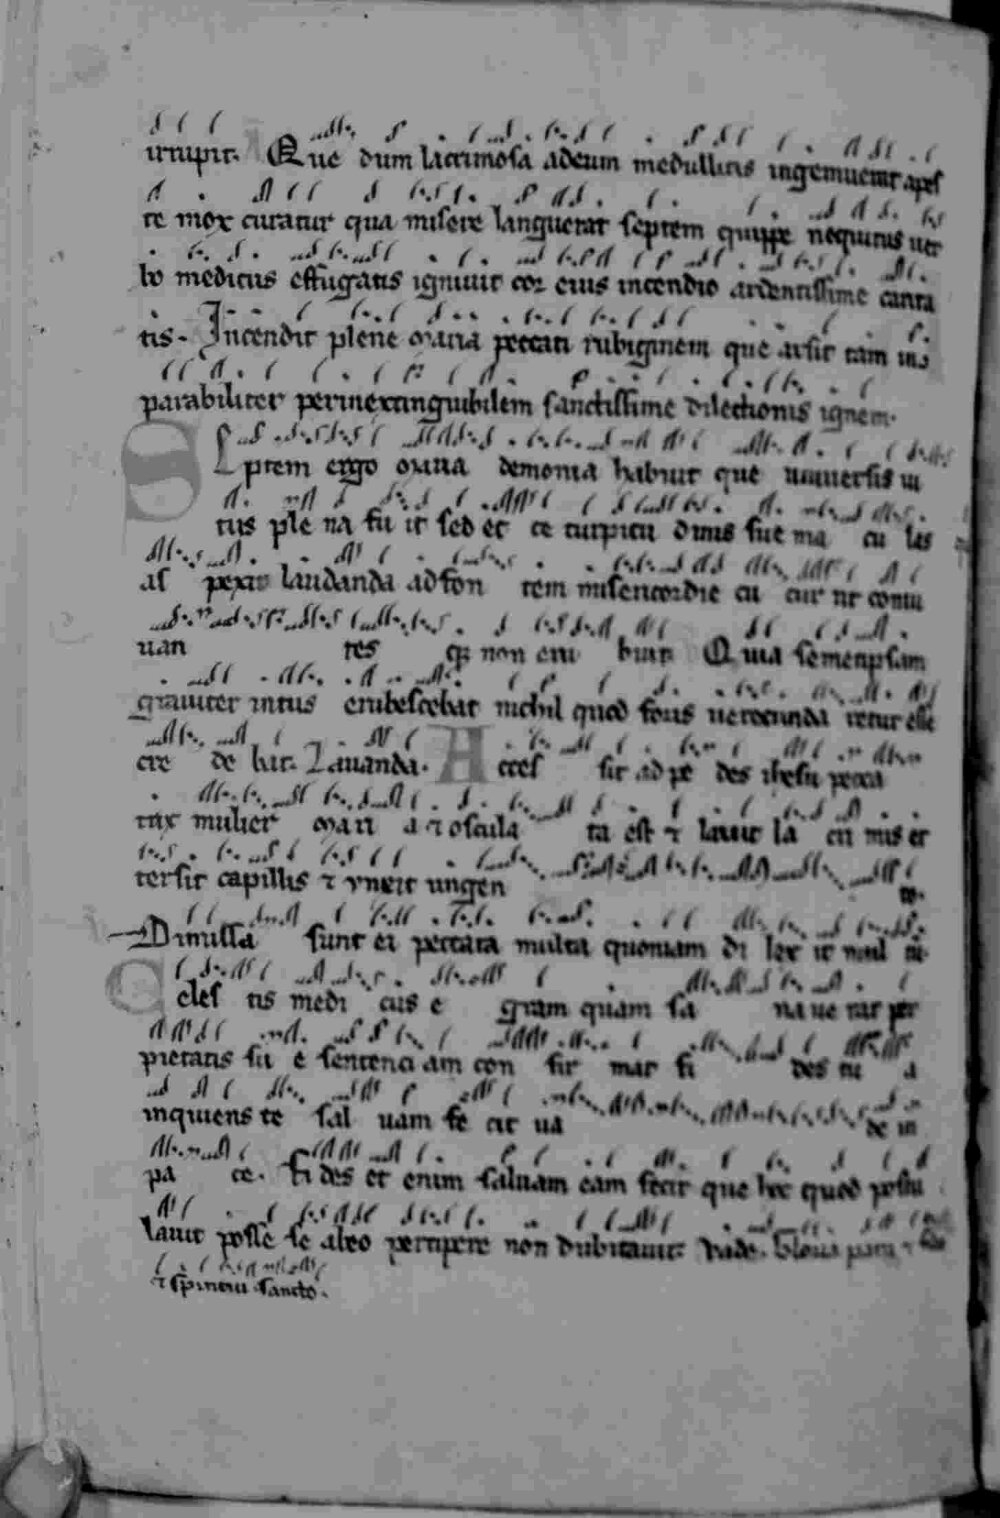 irrupit. Que dum lacrimosa adeum medullitus ingemueratr apt
te mox curatur qua misere languerat septem quippe nequitiis uer
bo medicus effugatis igniuit cor eius incendio ardentissime carita
tis. Incendit plene maria peccati rubiginem que arsit tam
parabiliter perinextinguibilem sanctissime dilectionis ignem.
Septem ergo maria demonia habuit que uniuersis ui
tiis ple na fu it sed et te turpitu dinis sue ma cu las
as pexit laudanda ad fon tem misericordie cu cur rit conui
uan tes q; non eru buit Quia semetipsam
grauiter intus erubescebat nichil quod foris uerecunda retur esse
cre de bat. Lauanda. Acces sit ad pe des ihesu pecca
trix mulier mari a ⁊ oscula ta est ⁊ lauit la cri mis et
tersit capillis ⁊ vnxit ungen to.
Dimissa sunt ei peccata multa quoniam di lex it mul tu
Celes tis medi cus e gram quam sa naue rat per
pietatis su e sentenci am con fir mat fi des tu a
inquiens te sal uam fe cit ua de in
pa ce. Fi des et enim saluam eam fecit que hec quod
lauit posse se abeo percipere non dubitauit. Vade. Gloria patri ⁊
⁊ spiritui sancto.